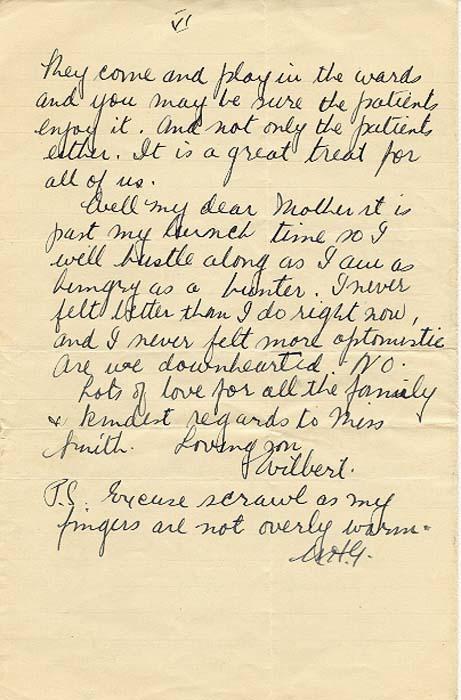 VI
They come and play in the wards
and you may be sure the patients
enjoy it. And not only the patients
either. It is a great treat for
all of us.
Well my dear Mother it is
past my lunch time so I
will hustle along as I am as
hungry as a hunter. I never
felt better than I do right now,
and I never felt more optomistic
Are we downhearted. NO.
Lots of love for all the family
& kindest regards to Miss
Smith. Loving son
Wilbert.
P.S. Excuse scrawl as my
fingers are not overly warm.